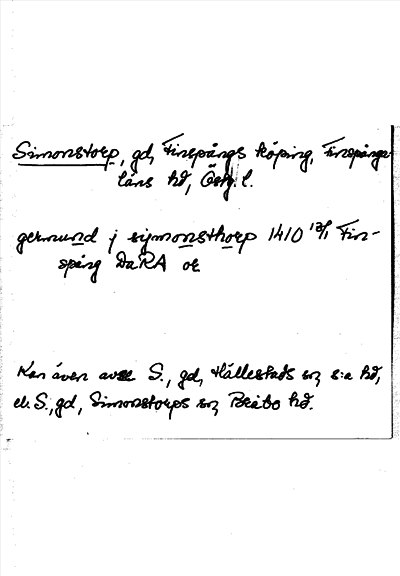 Simonstorp, gd, Finspångs köping, Finspånga
läns hd, Östg. l.
germund j symonsthorp 1410 13/1 Fin-
spång DaRA or
Kan även avse S., gd, Hällestads sn, s:a hd,
el. S., gd, Simonstorps sn, Bråbo hd.